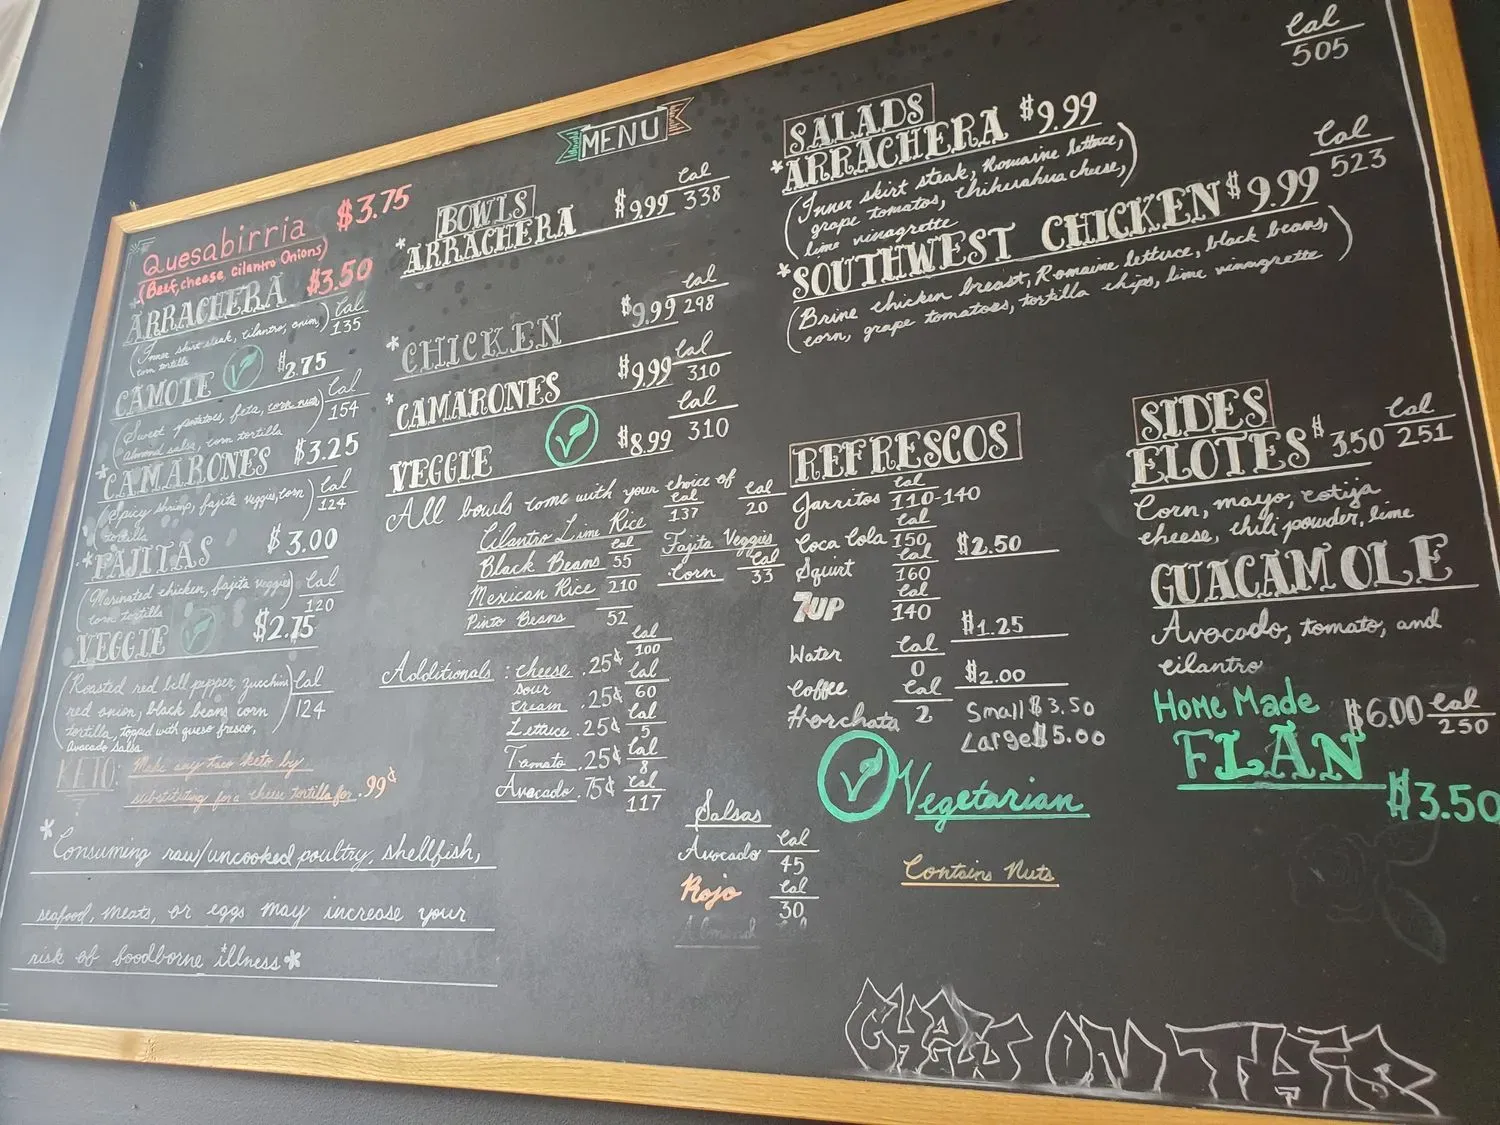 MENU
Quesabirria $3.75
(Beef, cheese, Cilantro Onions)
*ARRACHERA $3.50
(Inner skirt steak, cilantro, onion,) Cal
corn tortilla 135
CAMOTE $2.75
(Sweet potatoes, feta, corn nuts) Cal
almond salsa, corn tortilla 154
*CAMARONES $3.25
(Spicy shrimp, fajita veggies, corn) Cal
tortilla 124
*FAJITAS $3.00
(Marinated chicken, fajita veggies) Cal
corn tortilla 120
VEGGIE $2.75
(Roasted red bell pepper, zucchini) Cal
red onion, black beans, corn 124
tortilla, topped with queso fresco,
Avocado Salsa
KETO: Make any taco keto by
substituting for a cheese tortilla for .99¢
*Consuming raw/uncooked poultry, shellfish,
seafood, meats, or eggs may increase your
risk of foodborne illness*
BOWLS
*ARRACHERA $9.99 Cal 338
*CHICKEN $9.99 Cal 298
*CAMARONES $9.99 Cal 310
VEGGIE $8.99 Cal 310
All bowls come with your choice of
Cilantro Lime Rice Cal 137
Black Beans Cal 55
Mexican Rice 210
Pinto Beans 52
Fajita Veggies Cal 20
Corn Cal 33
Additionals: Cheese .25¢ Cal 100
Sour cream .25¢ Cal 60
Lettuce .25¢ Cal 5
Tomato .25¢ Cal 8
Avocado .75¢ Cal 117
Salsas
Avocado Cal 45
Rojo Cal 30
SALADS
*ARRACHERA $9.99 Cal 505
(Inner skirt steak, Romaine lettuce,
grape tomatoes, chihuahua cheese,)
lime vinagrette
*SOUTHWEST CHICKEN $9.99 Cal 523
(Brine chicken breast, Romaine lettuce, black beans,
corn, grape tomatoes, tortilla chips, lime vinaugrette)
REFRESCOS
Jarritos Cal 110-140
Coca Cola Cal 150 $2.50
Squirt Cal 160
7UP Cal 140
$1.25
Water Cal 0
$2.00
Coffee Cal 2
Horchata Small $3.50
Large $5.00
Vegetarian
Contains Nuts
SIDES
ELOTES $3.50 Cal 251
Corn, mayo, cotija
cheese, chili powder, lime
GUACAMOLE
Avocado, tomato, and
cilantro
$6.00 Cal 250
Home Made
FLAN
$3.50
CHALK ON THIS